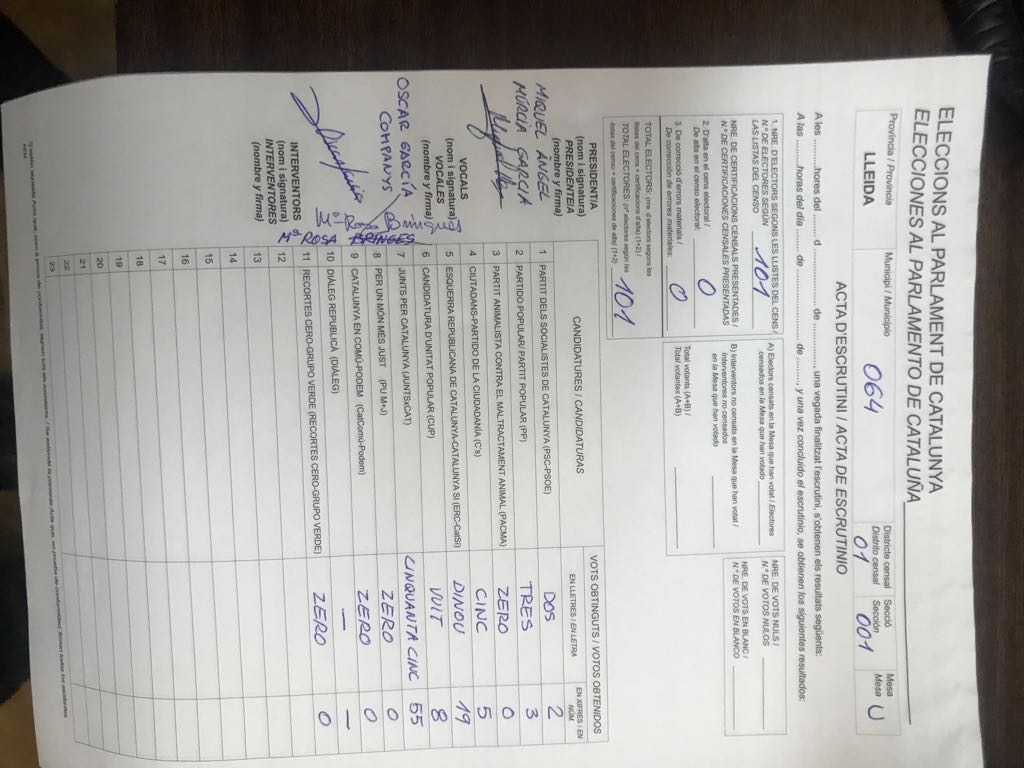 ELECCIONS AL PARLAMENT DE CATALUNYA
ELECCIONES AL PARLAMENTO DE CATALUÑA
Província / Provincia
LLEIDA
Municipi / Municipio
064
Districte censal
Distrito censal
01
Secció
Sección
001
Mesa
Mesa
U
ACTA D'ESCRUTINI / ACTA DE ESCRUTINIO
A les ........hores del ........ d ........ de ........, una vegada finalitzat l'escrutini, s'obtenen els resultats següents:
A las ........horas del día ........ de ........ de ........, y una vez concluido el escrutinio, se obtienen los siguientes resultados:
1. NRE. D'ELECTORS SEGONS LES LLISTES DEL CENS /
N.º DE ELECTORES SEGÚN
LAS LISTAS DEL CENSO
101
NRE. DE CERTIFICACIONS CENSALS PRESENTADES /
N.º DE CERTIFICACIONES CENSALES PRESENTADAS
2. D'alta en el cens electoral /
De alta en el censo electoral:
0
3. De correcció d'errors materials /
De corrección de errores materiales:
0
TOTAL ELECTORS: (nre. d'electors segons les
llistes del cens + certificacions d'alta) (1+2) /
TOTAL ELECTORES: (nº electores según las
listas del censo + certificaciones de alta) (1+2)
101
A) Electors censats en la Mesa que han votat / Electores
censados en la Mesa que han votado
B) Interventors no censats en la Mesa que han votat /
Interventores no censados
en la Mesa que han votado
Total votants (A+B) /
Total votantes (A+B)
NRE. DE VOTS NULS /
N.º DE VOTOS NULOS
NRE. DE VOTS EN BLANC /
N.º DE VOTOS EN BLANCO
PRESIDENT/A
(nom i signatura)
PRESIDENTE/A
(nombre y firma)
MIQUEL ÀNGEL
MÚRCIA GARCIA
VOCALS
(nom i signatura)
VOCALES
(nombre y firma)
OSCAR GARCÍA
COMPANYS
Mª ROSA BRINGES
INTERVENTORS
(nom i signatura)
INTERVENTORES
(nombre y firma)
CANDIDATURES / CANDIDATURAS
VOTS OBTINGUTS / VOTOS OBTENIDOS
EN LLETRES / EN LETRA
EN XIFRES / EN NÚM.
1 PARTIT DELS SOCIALISTES DE CATALUNYA (PSC-PSOE) DOS 2
2 PARTIDO POPULAR/ PARTIT POPULAR (PP) TRES 3
3 PARTIT ANIMALISTA CONTRA EL MALTRACTAMENT ANIMAL (PACMA) ZERO 0
4 CIUTADANS-PARTIDO DE LA CIUDADANÍA (C's) CINC 5
5 ESQUERRA REPUBLICANA DE CATALUNYA-CATALUNYA SÍ (ERC-CatSí) DINOU 19
6 CANDIDATURA D'UNITAT POPULAR (CUP) VUIT 8
7 JUNTS PER CATALUNYA (JUNTSxCAT) CINQUANTA CINC 55
8 PER UN MÓN MÉS JUST (PUM+J) ZERO 0
9 CATALUNYA EN COMÚ-PODEM (CatComú-Podem) ZERO 0
10 DIÀLEG REPUBLICÀ (DIÀLEG) — —
11 RECORTES CERO-GRUPO VERDE (RECORTES CERO-GRUPO VERDE) ZERO 0
12
13
14
15
16
17
18
19
20
21
22
23